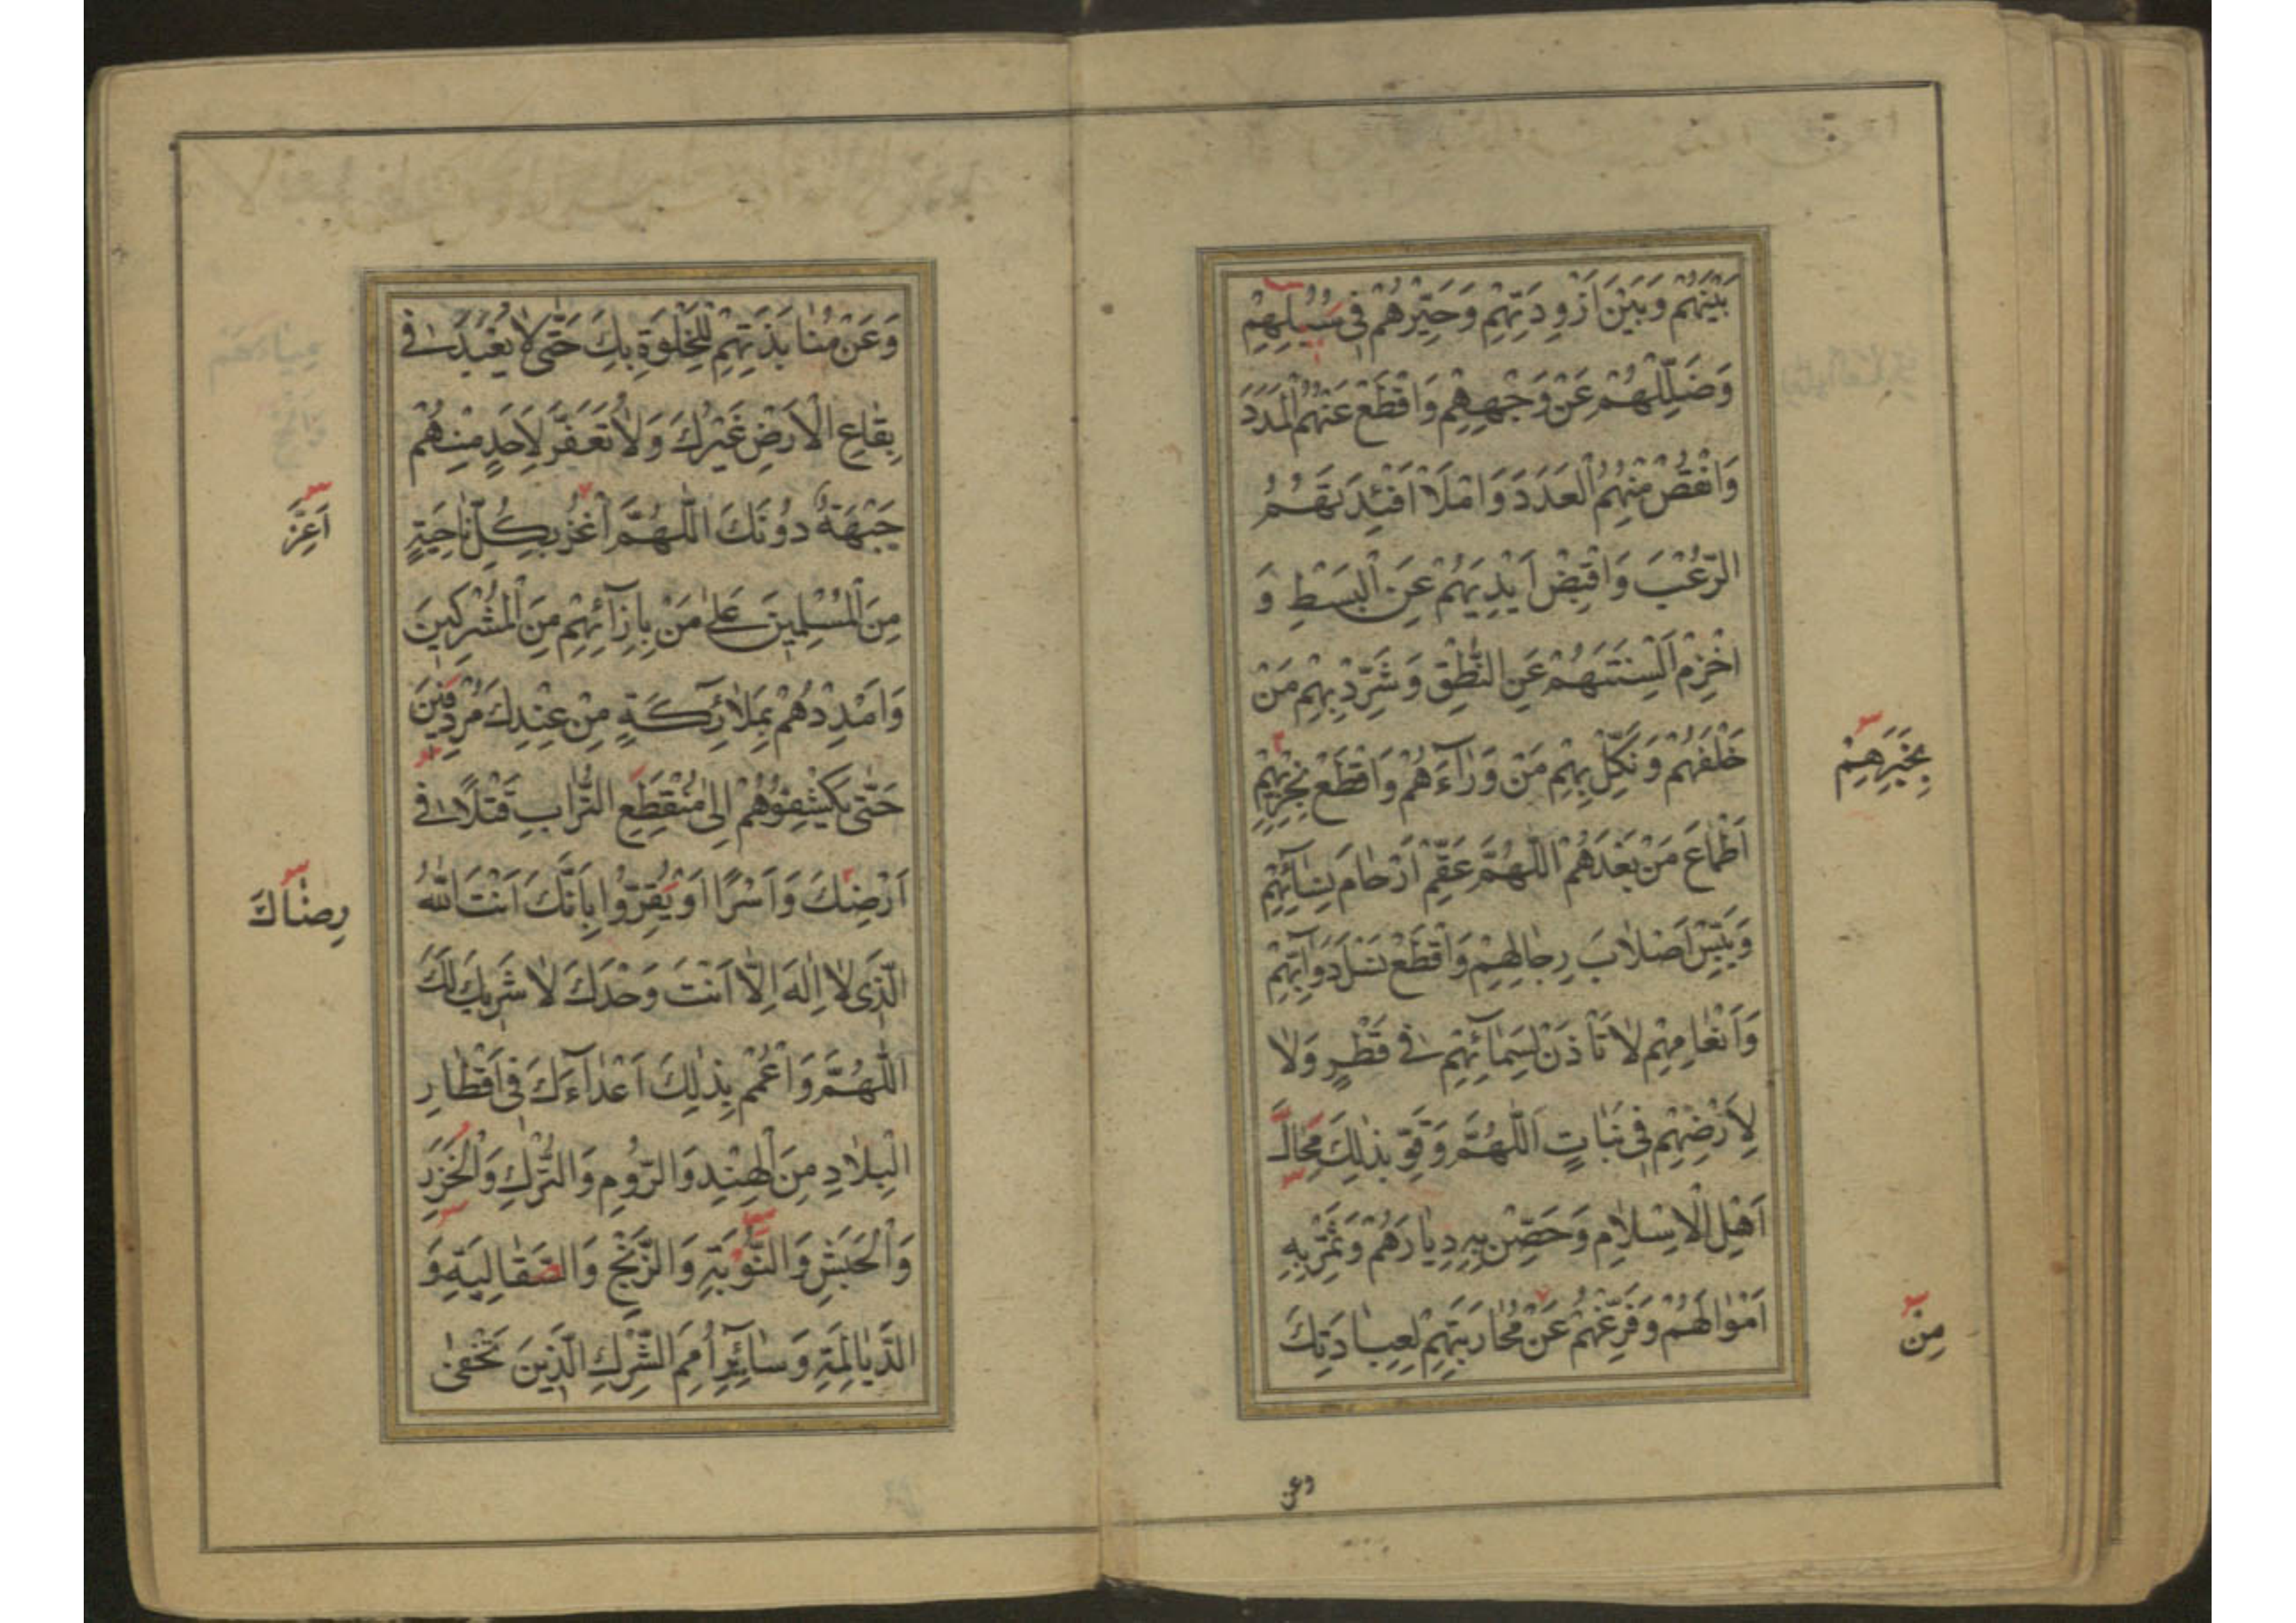 بَيْنَهُمْ وَبَيْنَ اَزْوِدَتِهِمْ وَحَيِّرْهُمْ فِي سُبُلِهِمْ
وَضَلِّلْهُمْ عَنْ وَجْهِهِمْ وَاقْطَعْ عَنْهُمُ الْمَدَدَ
وَانْقُصْ مِنْهُمُ الْعَدَدَ وَامْلَأْ اَفْئِدَتَهُمُ
الرُّعْبَ وَاقْبِضْ اَيْدِيَهُمْ عَنِ الْبَسْطِ وَ
اخْزِمْ اَلْسِنَتَهُمْ عَنِ النُّطْقِ وَشَرِّدْ بِهِمْ مَنْ
خَلْفَهُمْ وَنَكِّلْ بِهِمْ مَنْ وَرَاءَهُمْ وَاقْطَعْ بِخِزْيِهِمْ
بِخَبَرِهِمْ
اَطْمَاعَ مَنْ بَعْدَهُمْ اَللّٰهُمَّ عَقِّمْ اَرْحَامَ نِسَآئِهِمْ
وَيَبِّسْ اَصْلَابَ رِجَالِهِمْ وَاقْطَعْ نَسْلَ دَوَآبِّهِمْ
وَاَنْعَامِهِمْ لَا تَأْذَنْ لِسَمَآئِهِمْ فِي قَطْرٍ وَلَا
لِاَرْضِهِمْ فِي نَبَاتٍ اَللّٰهُمَّ وَقَوِّ بِذٰلِكَ مِحَالَ
اَهْلِ الْاِسْلَامِ وَحَصِّنْ بِهِ دِيَارَهُمْ وَثَمِّرْ بِهِ
اَمْوَالَهُمْ وَفَرِّغْهُمْ عَنْ مُحَارَبَتِهِمْ لِعِبَادَتِكَ
مِنْ
وعن
وَعَنْ مُنَابَذَتِهِمْ لِلْخَلْوَةِ بِكَ حَتّٰى لَا يُعْبَدَ فِي
بِقَاعِ الْاَرْضِ غَيْرُكَ وَلَا تُعَفَّرَ لِاَحَدٍ مِنْهُمْ
جَبْهَةٌ دُونَكَ اَللّٰهُمَّ اغْزُ بِكُلِّ نَاحِيَةٍ
اَعِزَّ
مِنَ الْمُسْلِمِينَ عَلٰى مَنْ بِاِزَآئِهِمْ مِنَ الْمُشْرِكِينَ
وَاَمْدِدْهُمْ بِمَلَآئِكَةٍ مِنْ عِنْدِكَ مُرْدِفِينَ
حَتّٰى يَكْشِفُوهُمْ اِلٰى مُنْقَطَعِ التُّرَابِ قَتْلًا فِي
اَرْضِكَ وَاَسْرًا اَوْ يُقِرُّوا بِاَنَّكَ اَنْتَ اللّٰهُ
رِضَاكَ
الَّذِي لَا اِلٰهَ اِلَّا اَنْتَ وَحْدَكَ لَا شَرِيكَ لَكَ
اَللّٰهُمَّ وَاعْمُمْ بِذٰلِكَ اَعْدَآءَكَ فِي اَقْطَارِ
الْبِلَادِ مِنَ الْهِنْدِ وَالرُّومِ وَالتُّرْكِ وَالْخَزَرِ
وَالْحَبَشِ وَالنُّوبَةِ وَالزَّنْجِ وَالسَّقَالِبَةِ وَ
الدَّيَالِمَةِ وَسَآئِرِ اُمَمِ الشِّرْكِ الَّذِينَ تَخْفٰى